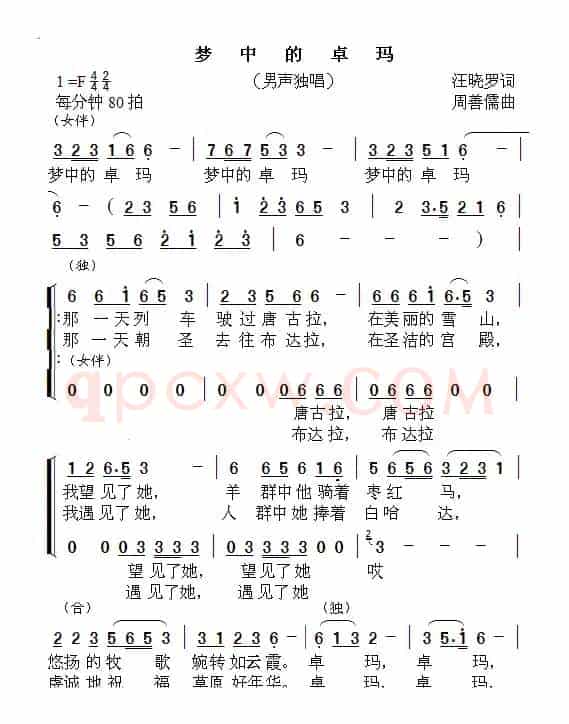 梦中的卓玛
1=F 4/4 2/4 （男声独唱） 汪晓罗词
每分钟80拍 周善儒曲
（女伴）
3 2 3 1 6 6 - | 7 6 7 5 3 3 - | 3 2 3 5 1 6 -
梦中的 卓 玛 梦中的 卓 玛 梦中的 卓 玛
6 - ( 2 3 5 6 | 1 2 3 6 5 1 | 2 3·5 2 1 6 |
5 3 5 6 2 1 2 3 | 6 - - - )
（独）
6 6 1 6 5 3 | 2 3 5 6 1 6 | 2 2 1 6·5 3 |
那 一天列 车 驶过唐古拉， 在美丽的雪山，
那 一天朝 圣 去往布达拉， 在圣洁的宫殿，
（女伴）
0 0 0 0 | 0 0 0 6 6 6 | 0 6 6 6 0 0 |
唐古拉， 唐古拉
布达拉， 布达拉
1 2 6·5 3 | 6 6 5 6 6 1 6 | 5 6 5 6 3 2 3 1 |
我望见了她， 羊 群中他骑着 枣红 马，
我遇见了她， 人 群中她捧着 白哈 达，
0 0 0 3 3 3 | 0 3 3 3 0 0 | 2 3 - - - |
望见了她， 望见了她 哎
遇见了她， 遇见了她
（合） （独）
2 2 3 5 6 5 3 | 2 2 3 5 2 3 3 | 6 1 3 2 | 3 5·1 6
悠扬的牧 歌 婉转如云霞。 卓 玛， 卓 玛，
虔诚地祝 福 草原好年华。 卓 玛， 卓 玛，
qpcxw.COM